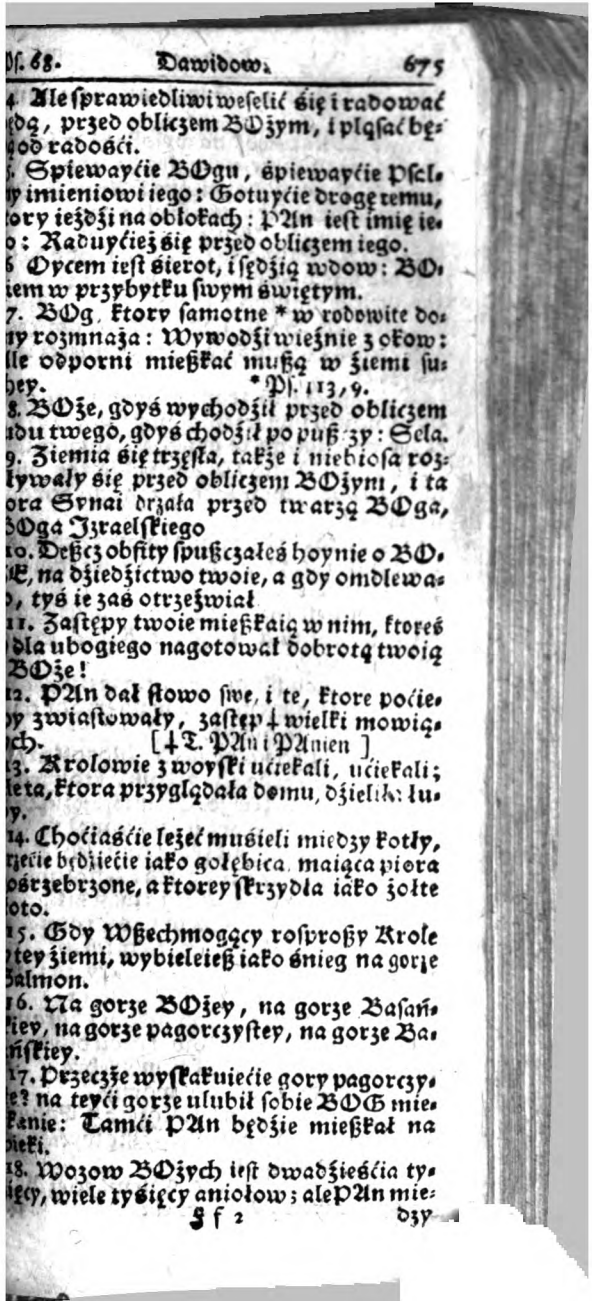 Ps. 68. Dawidow. 675
4. Ale sprawiedliwi weselić się i radować
będą, przed obliczem BOżym, i pląsać bę-
od radości.
5. Spiewayćie BOgu, śpiewayćie Psal-
my imieniowi iego: Gotuyćie drogę temu,
ktory ieźdźi na obłokach: PAn iest imię ie-
go: Raduyćież się przed obliczem iego.
6 Oycem iest sierot, i sędźią wdow: BO-
giem w przybytku swym świętym.
7. BOg, ktory samotne * w rodowite do-
my rozmnaża: Wywodźi więźnie z okow:
Ale odporni mießkać mußą w źiemi su-
chey. * Ps. 113, 9.
8. BOże, gdyś wychodźił przed obliczem
ludu twego, gdyś chodźił po pußczy: Sela.
9. Ziemia się trzęsła, także i niebiosa roz-
pływały się przed obliczem BOżym, i ta
gora Synai drżała przed twarzą BOga,
BOga Izraelskiego
10. Deßcz obfity spußczałeś hoynie o BO-
ŻE, na dźiedźictwo twoie, a gdy omdlewa-
ło, tyś ie zaś otrzeźwiał
11. Zastępy twoie mießkaią w nim, ktoreś
dla ubogiego nagotował dobrotą twoią
BOże!
12. PAn dał słowo swe, i te, ktore poćie-
chy zwiastowały, zastęp ⸸ wielki mowią-
cych. [⸸ T. PAn i PAnien ]
13. Krolowie z woyski ućiekali, ućiekali;
ieta, ktora przyglądała domu, dźieliła łu-
py.
14. Choćiaśćie leżeć muśieli miedzy kotły,
przećie będźiećie iako gołębica maiąca piora
pośrzebrzone, a ktorey skrzydła iako żołte
złoto.
15. Gdy Wßechmogący rosproßy Krole
w tey źiemi, wybieleieß iako śnieg na gorze
Salmon.
16. Na gorze BOżey, na gorze Basań-
skiey, na gorze pagorczystey, na gorze Ba-
sańskiey.
17. Przeczże wyskakuiećie gory pagorczy-
ste? na teyći gorze ulubił sobie BOG mie-
ßkanie: Tamći PAn będźie mießkał na
wieki.
18. Wozow BOżych iest dwadźieśćia ty-
sięcy, wiele tysięcy aniołow; ale PAn mie-
F f 2 dzy